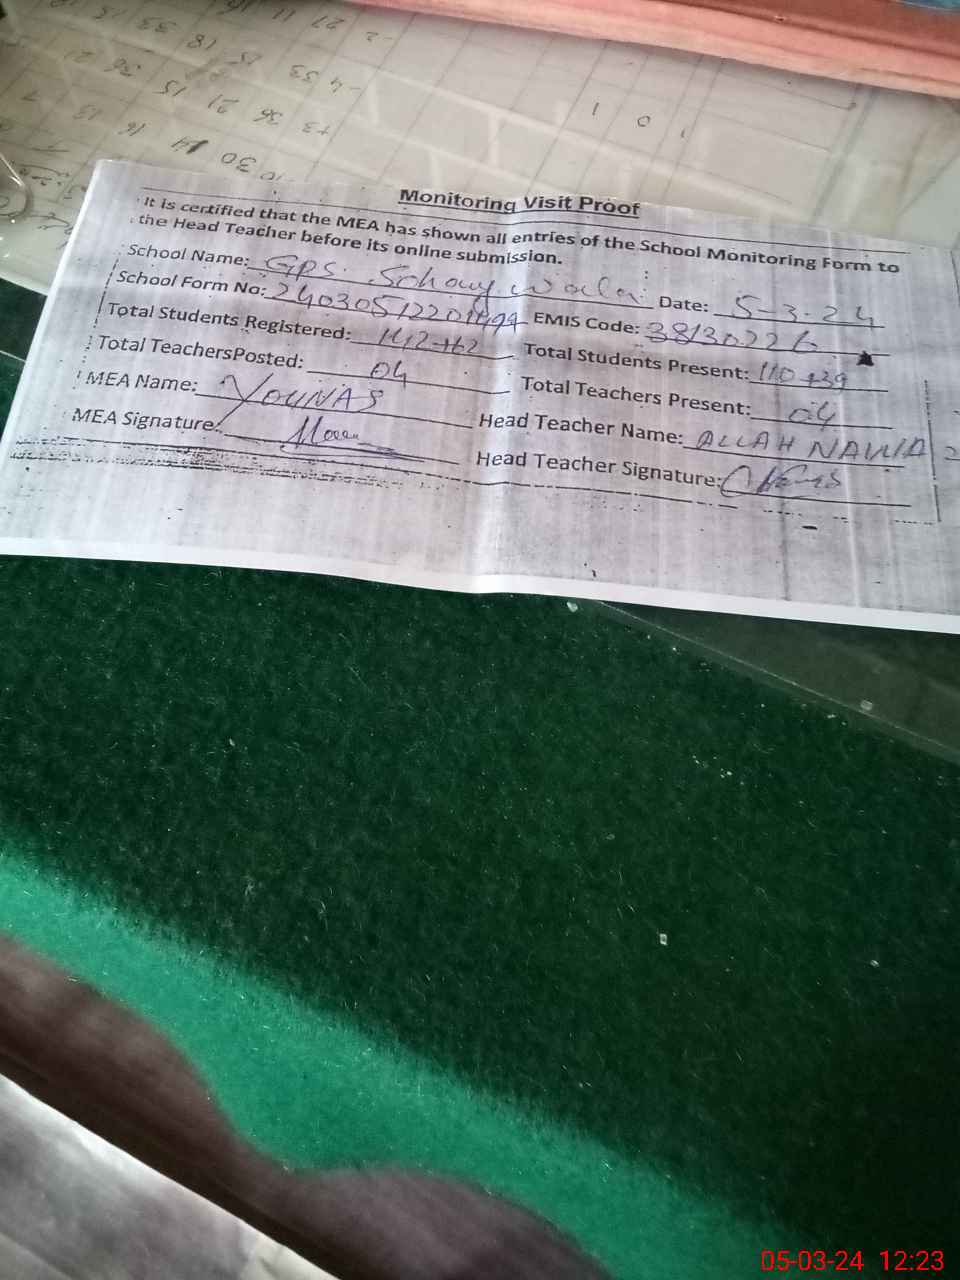 -2 27 11 16
-4 33 25 18 33 18 15
+3 36 21 15 36 21
10 30 14 16 13 7
1 0 1
Monitoring Visit Proof
It is certified that the MEA has shown all entries of the School Monitoring Form to
the Head Teacher before its online submission.
School Name: GPS. Sohawy Wala Date: 5-3-24
School Form No: EMIS Code: 38130226
Total Students Registered: 142+62 Total Students Present: 110+39
Total TeachersPosted: 04 Total Teachers Present: 04
MEA Name: YOUNAS Head Teacher Name: ALLAH NAWA
MEA Signature: Head Teacher Signature:
05-03-24 12:23